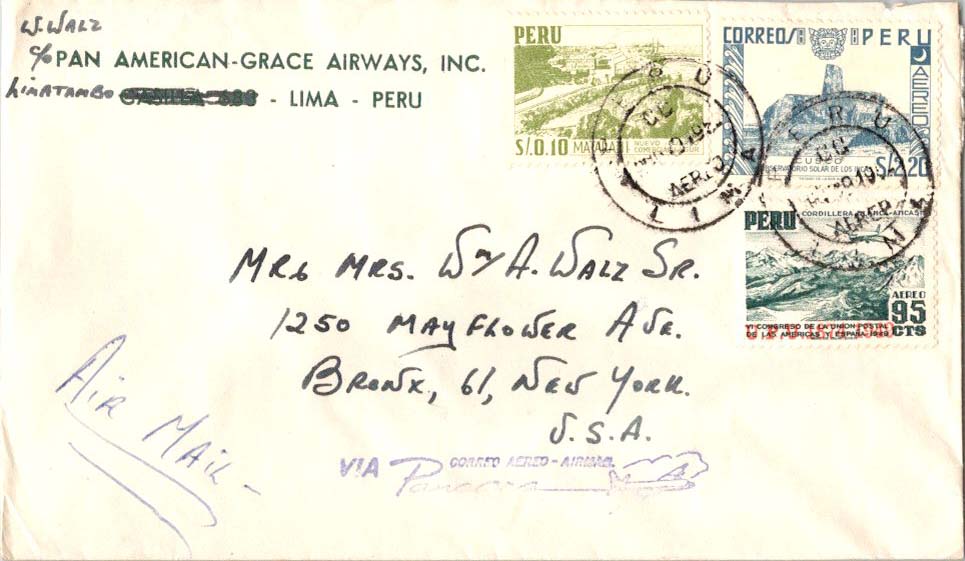 W. WALZ
C/O PAN AMERICAN-GRACE AIRWAYS, INC.
LIMATAMBO - LIMA - PERU
PERU
S/.0.10 MATARANI
NUEVO
CORREOS PERU
AEREO
CUZCO
OBSERVATORIO SOLAR DE LOS INCAS
S/.2.20
PERU
LIMA
CC
AEREO
PERU
CC
AEREO
PERU CORDILLERA BLANCA-ANCASH
AEREO
95
CTS
VI CONGRESO DE LA UNION POSTAL
DE LAS AMERICAS Y ESPAÑA-1949
MR & MRS. WM A. WALZ SR.
1250 MAYFLOWER AVE.
BRONX, 61, NEW YORK.
U.S.A.
AIR MAIL
VIA Panagra CORREO AEREO-AIRMAIL